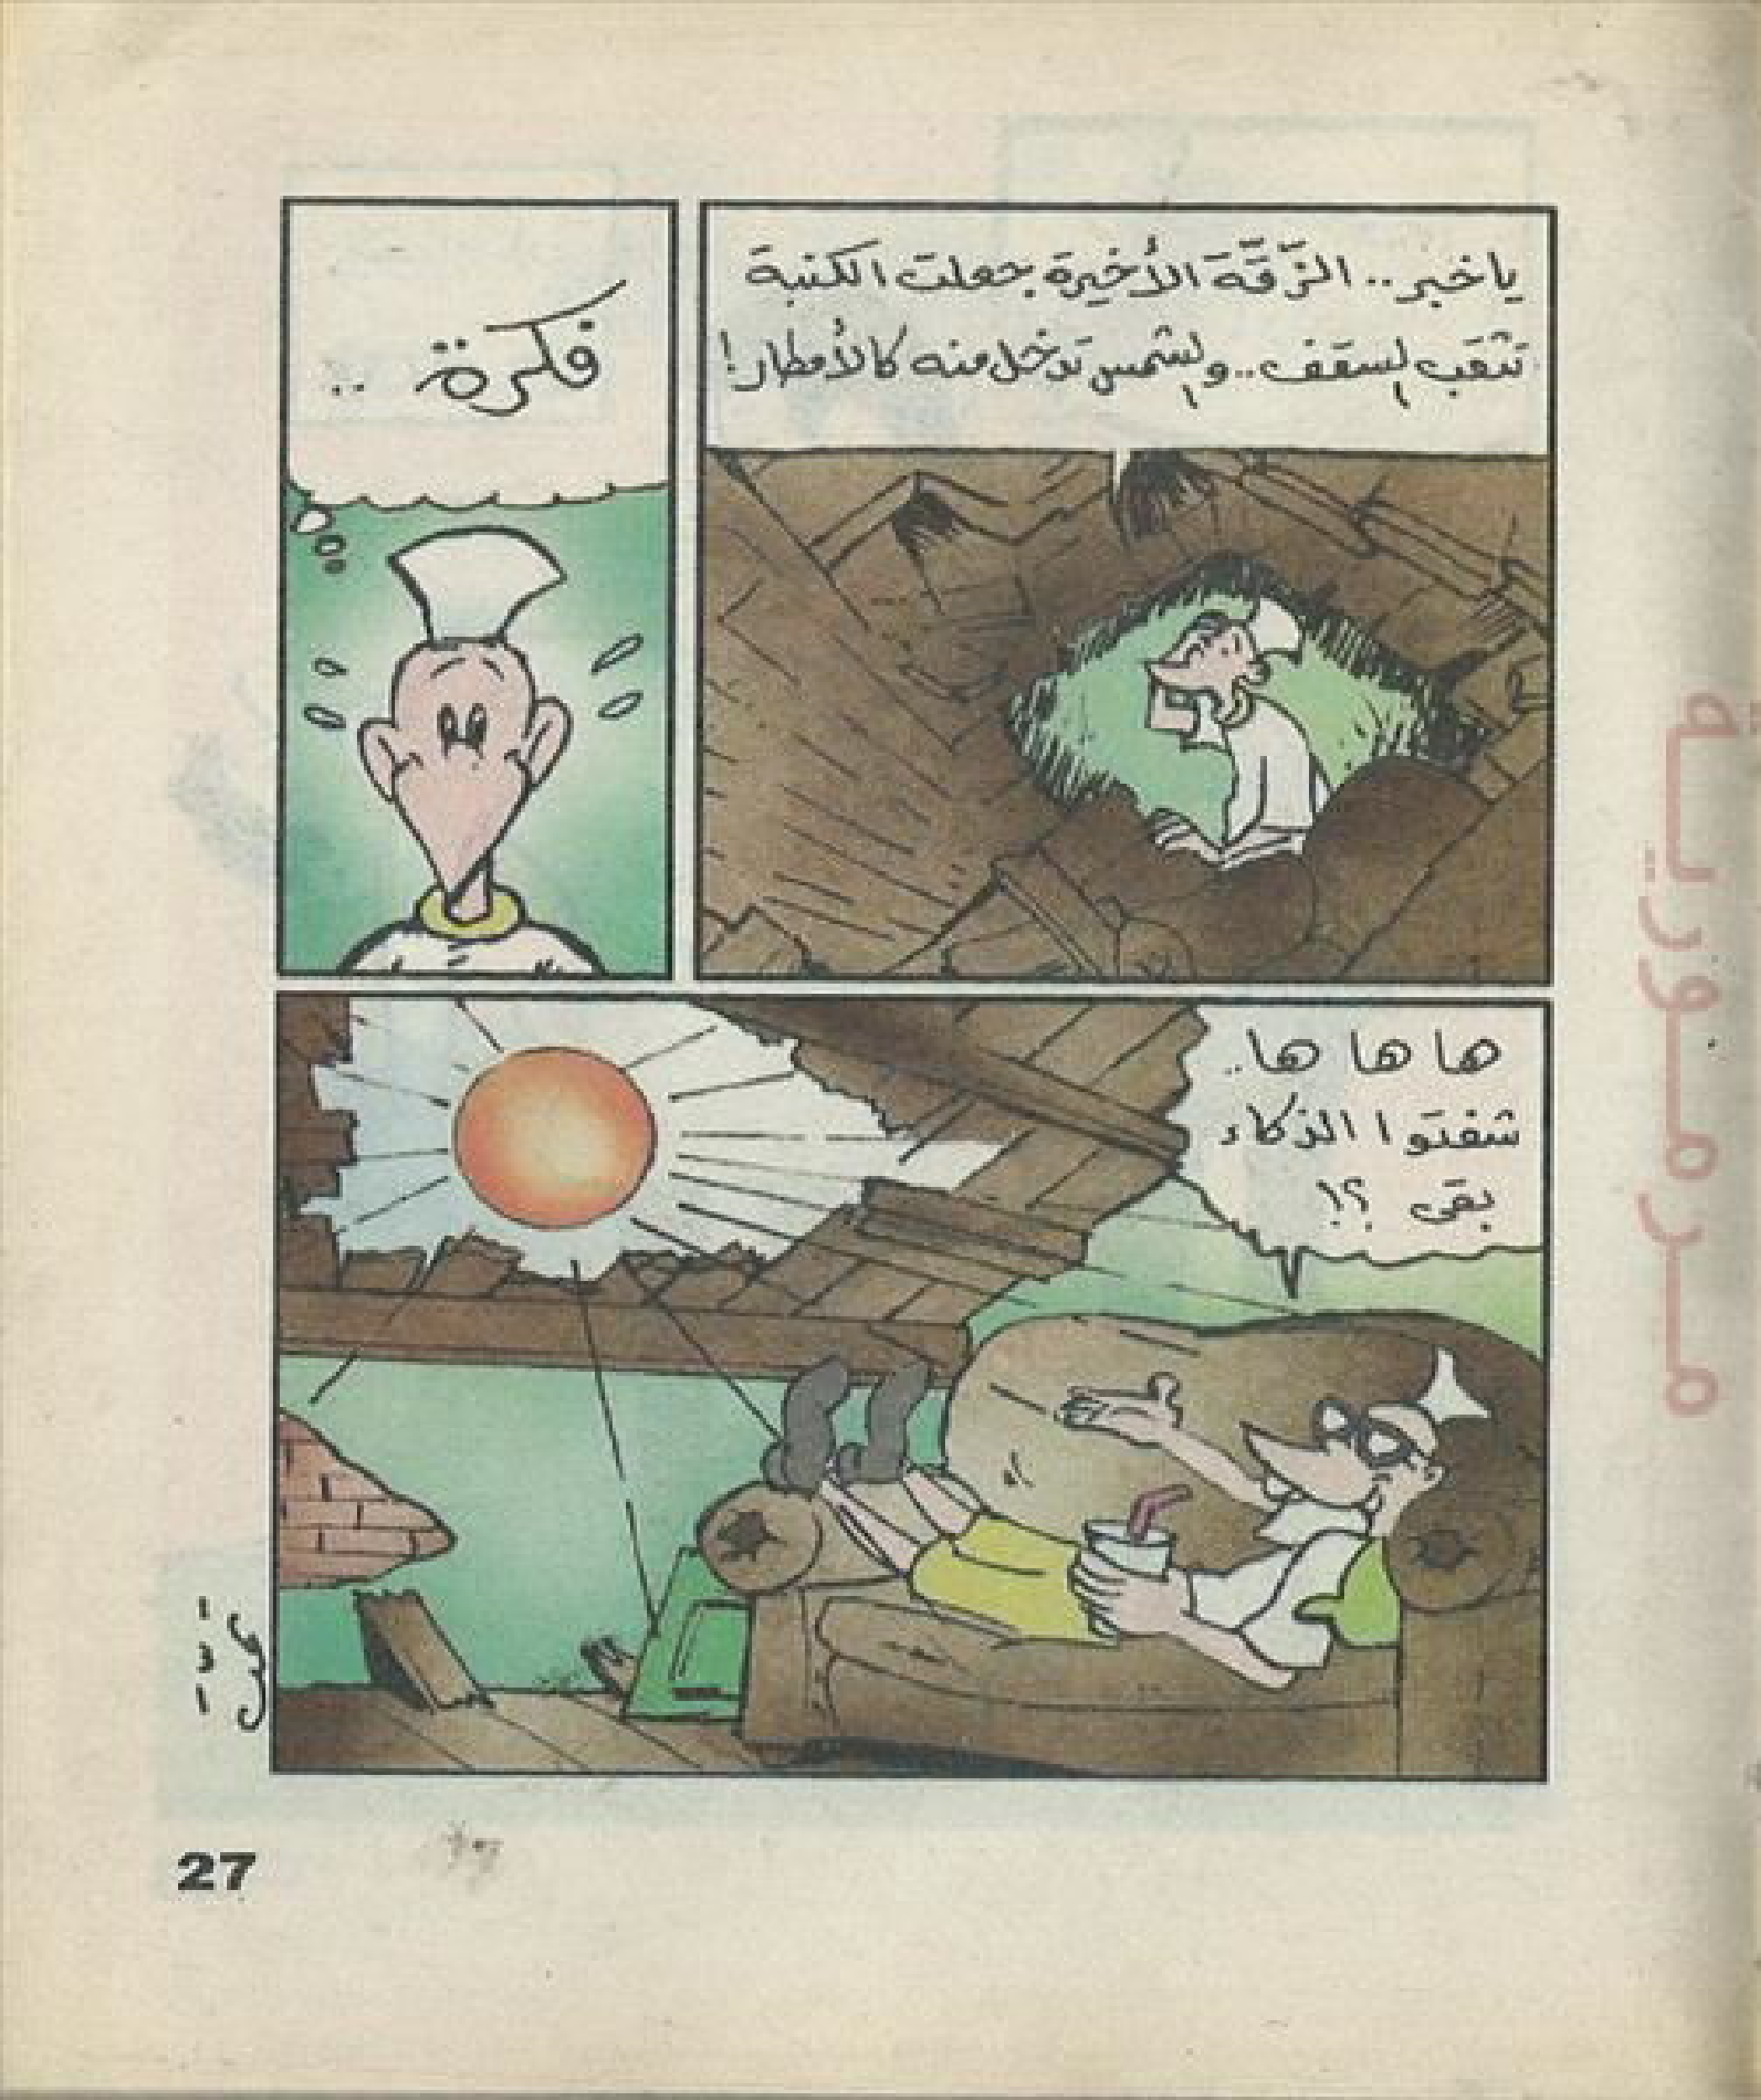 ياخبر.. الزّقّة الأخيرة جعلت الكنبة
تثقب السقف.. والشمس تدخل منه كالأمطار!
فكرة ..
ها ها ها..
شفتوا الذكاء
بقى ؟!
27